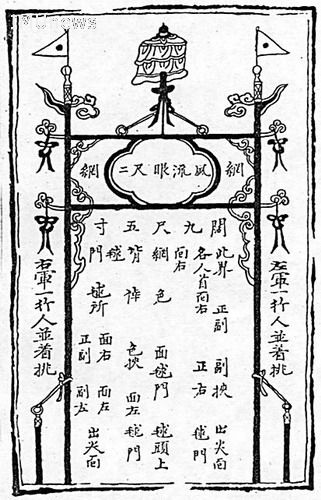 網
風流眼尺二
網
左軍一行人並着挑
闊 此界 正副 副挾 出尖向
各人皆向右 正右 毬門
九 向右
尺 網 色 面毬門 毬頭上
五 背 作 色挾 面左 毬門
寸 門 毬 毬所 面右 面左
正副 副左 出尖向
右軍一行人並着挑